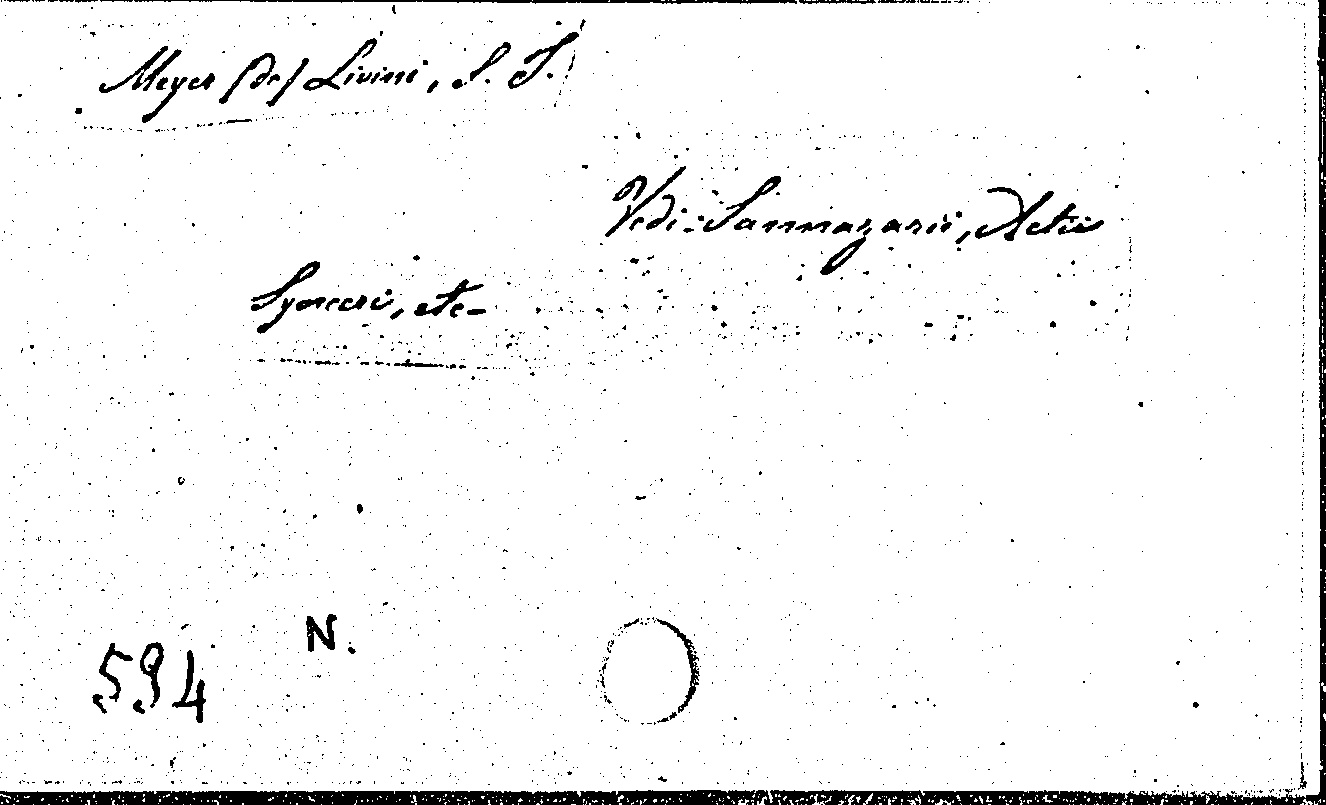 Meyer (de) Livini, S. J.
Vedi: Sannazarii, Actii
Synceri, etc-
N.
594